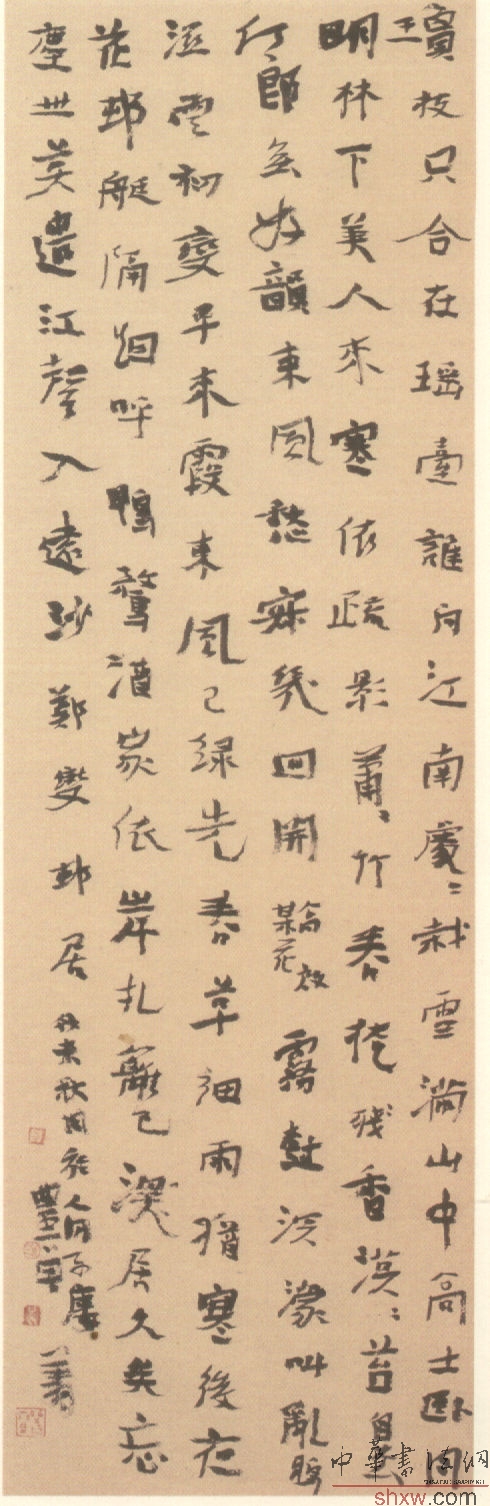 瓊枝只合在瑶臺誰向江南處〻栽雪滿山中高士臥月
明林下美人來寒依疏影蕭〻竹春掩殘香漠〻苔自去
何郎無好韻東風愁寂幾回開高啟某花霧樹溟濛叫亂鴉
濕雲初變早來霞東風已綠先春草細雨猶寒後夜
花邨艇隔烟呼鴨鶩酒家依岸扎籬巴深居久矣忘
塵世莫遣江聲入遠沙鄭燮邨居
中華書法網
shxw.com